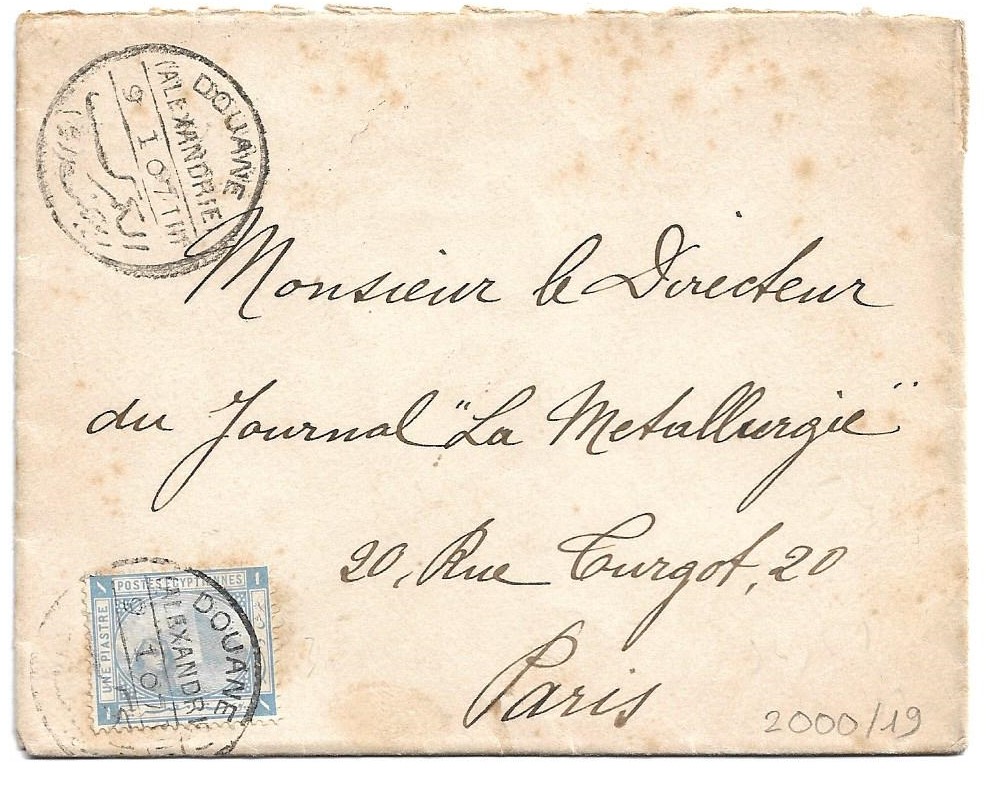 DOUANE
ALEXANDRIE
9 I 07 T III
Monsieur le Directeur
du Journal "La Metallurgie"
20, Rue Turgot, 20
Paris
POSTES EGYPTIENNES
1 1
UNE PIASTRE
1
DOUANE
ALEXANDRI
9 I 07
2000/19